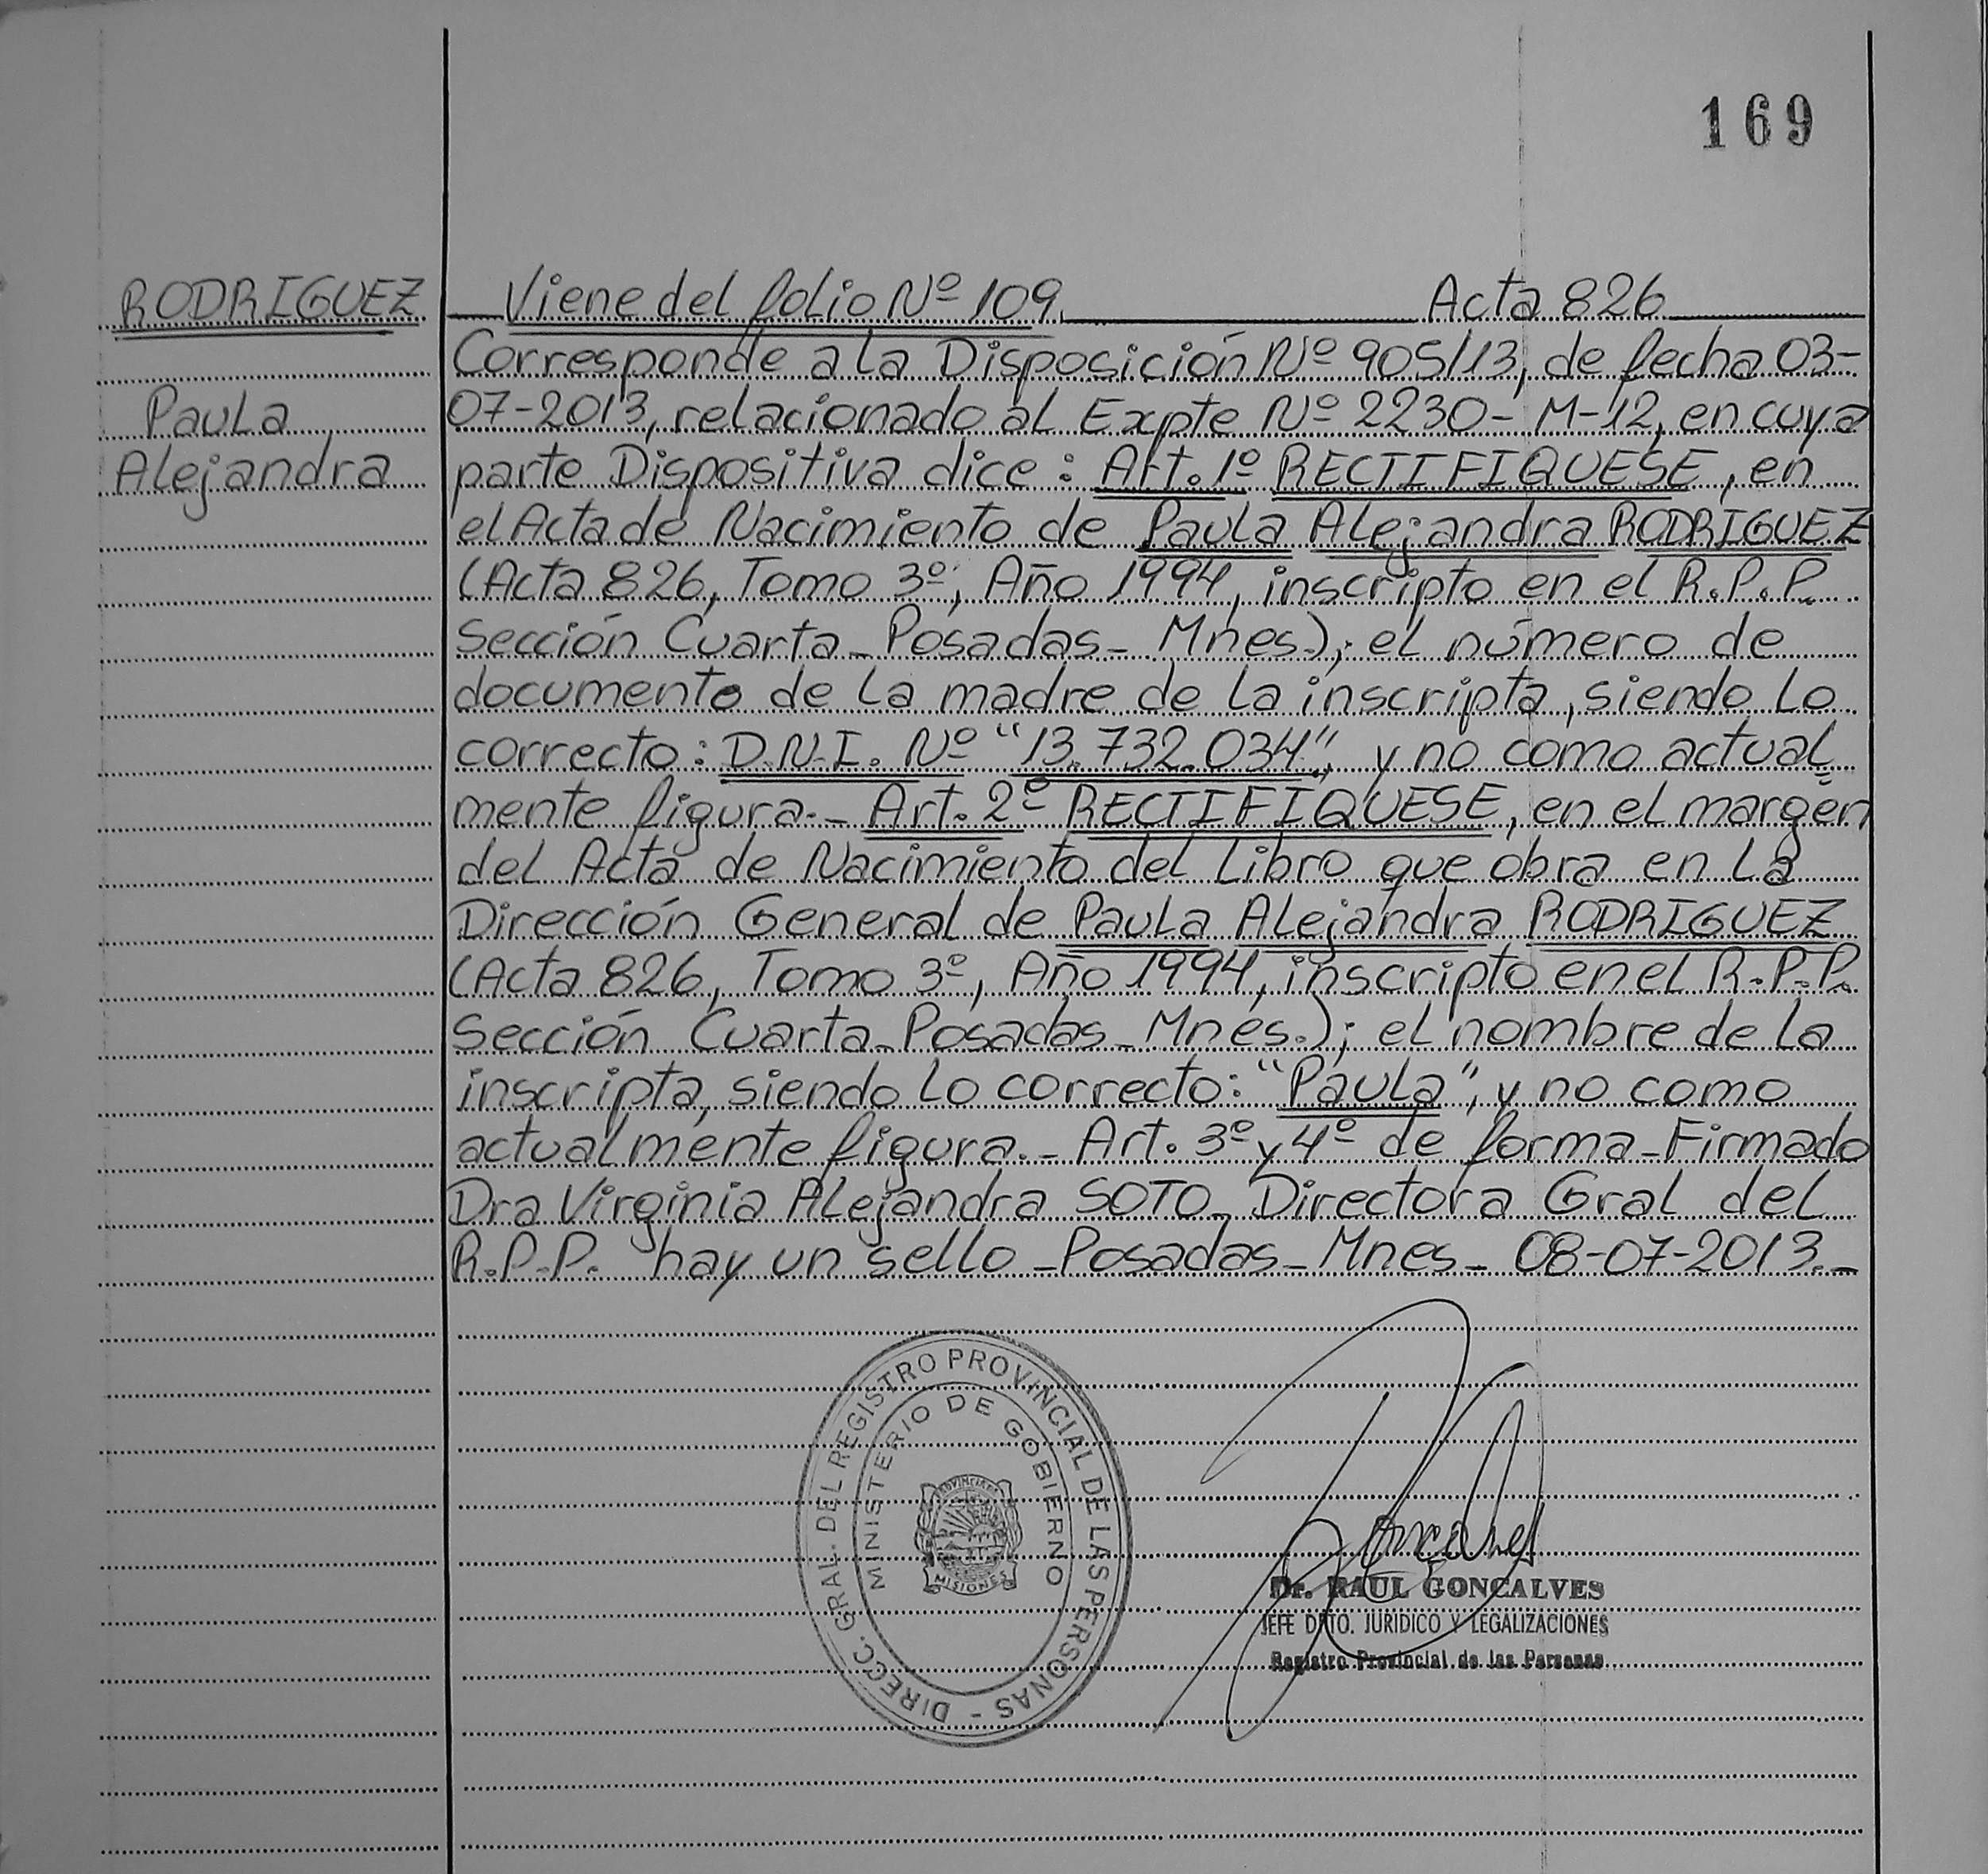 169
RODRIGUEZ
Paula
Alejandra
Viene del folio Nº 109. Acta 826
Corresponde a la Disposición Nº 905/13, de fecha 03-
07-2013, relacionado al Expte Nº 2230-M-12, en cuya
parte Dispositiva dice: Art. 1º RECTIFIQUESE, en
el Acta de Nacimiento de Paula Alejandra RODRIGUEZ
(Acta 826, Tomo 3º, Año 1994, inscripto en el R.P.P.
Sección Cuarta_Posadas_Mnes.); el número de
documento de la madre de la inscripta, siendo lo
correcto: D.N.I. Nº "13.732.034", y no como actual
mente figura._ Art. 2º RECTIFIQUESE, en el margen
del Acta de Nacimiento del Libro que obra en la
Dirección General de Paula Alejandra RODRIGUEZ
(Acta 826, Tomo 3º, Año 1994, inscripto en el R.P.P.
Sección Cuarta_Posadas_Mnes.); el nombre de la
inscripta, siendo lo correto: "Paula", y no como
actualmente figura._ Art. 3º y 4º de forma_Firmado
Dra Virginia Alejandra SOTO_Directora Gral del
R.P.P. hay un sello_Posadas_Mnes_08-07-2013._
DIRECC. GRAL. DEL REGISTRO PROVINCIAL DE LAS PERSONAS -
MINISTERIO DE GOBIERNO
PROVINCIA
MISIONES
Dr. RAUL GONCALVES
JEFE DPTO. JURIDICO Y LEGALIZACIONES
Registro Provincial de las Personas